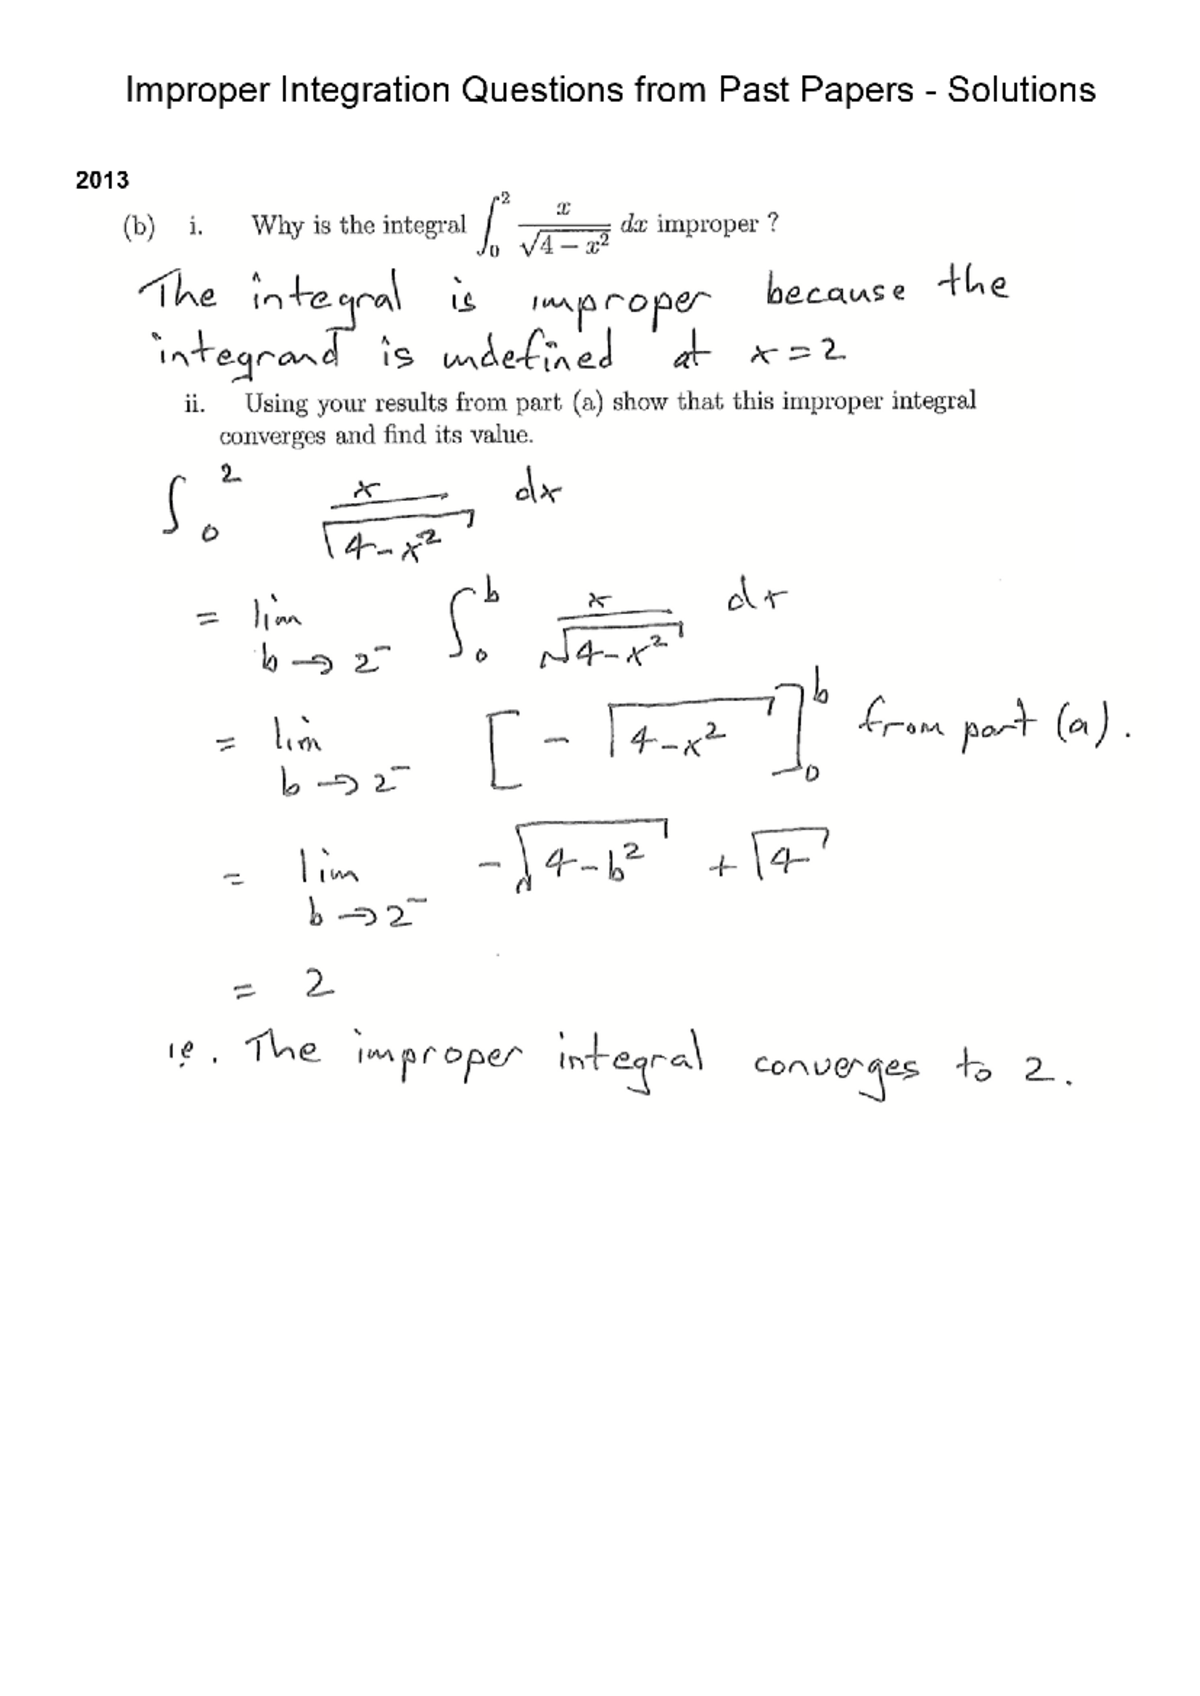 Improper Integration Questions from Past Papers - Solutions
2013
(b) i. Why is the integral ∫₀² x/√(4 − x²) dx improper ?
The integral is improper because the
integrand is undefined at x = 2
ii. Using your results from part (a) show that this improper integral
converges and find its value.
∫₀² x/√(4-x²) dx
= lim b→2⁻ ∫₀ᵇ x/√(4-x²) dx
= lim b→2⁻ [-√(4-x²)]₀ᵇ from part (a).
= lim b→2⁻ -√(4-b²) + √4
= 2
i.e. The improper integral converges to 2.